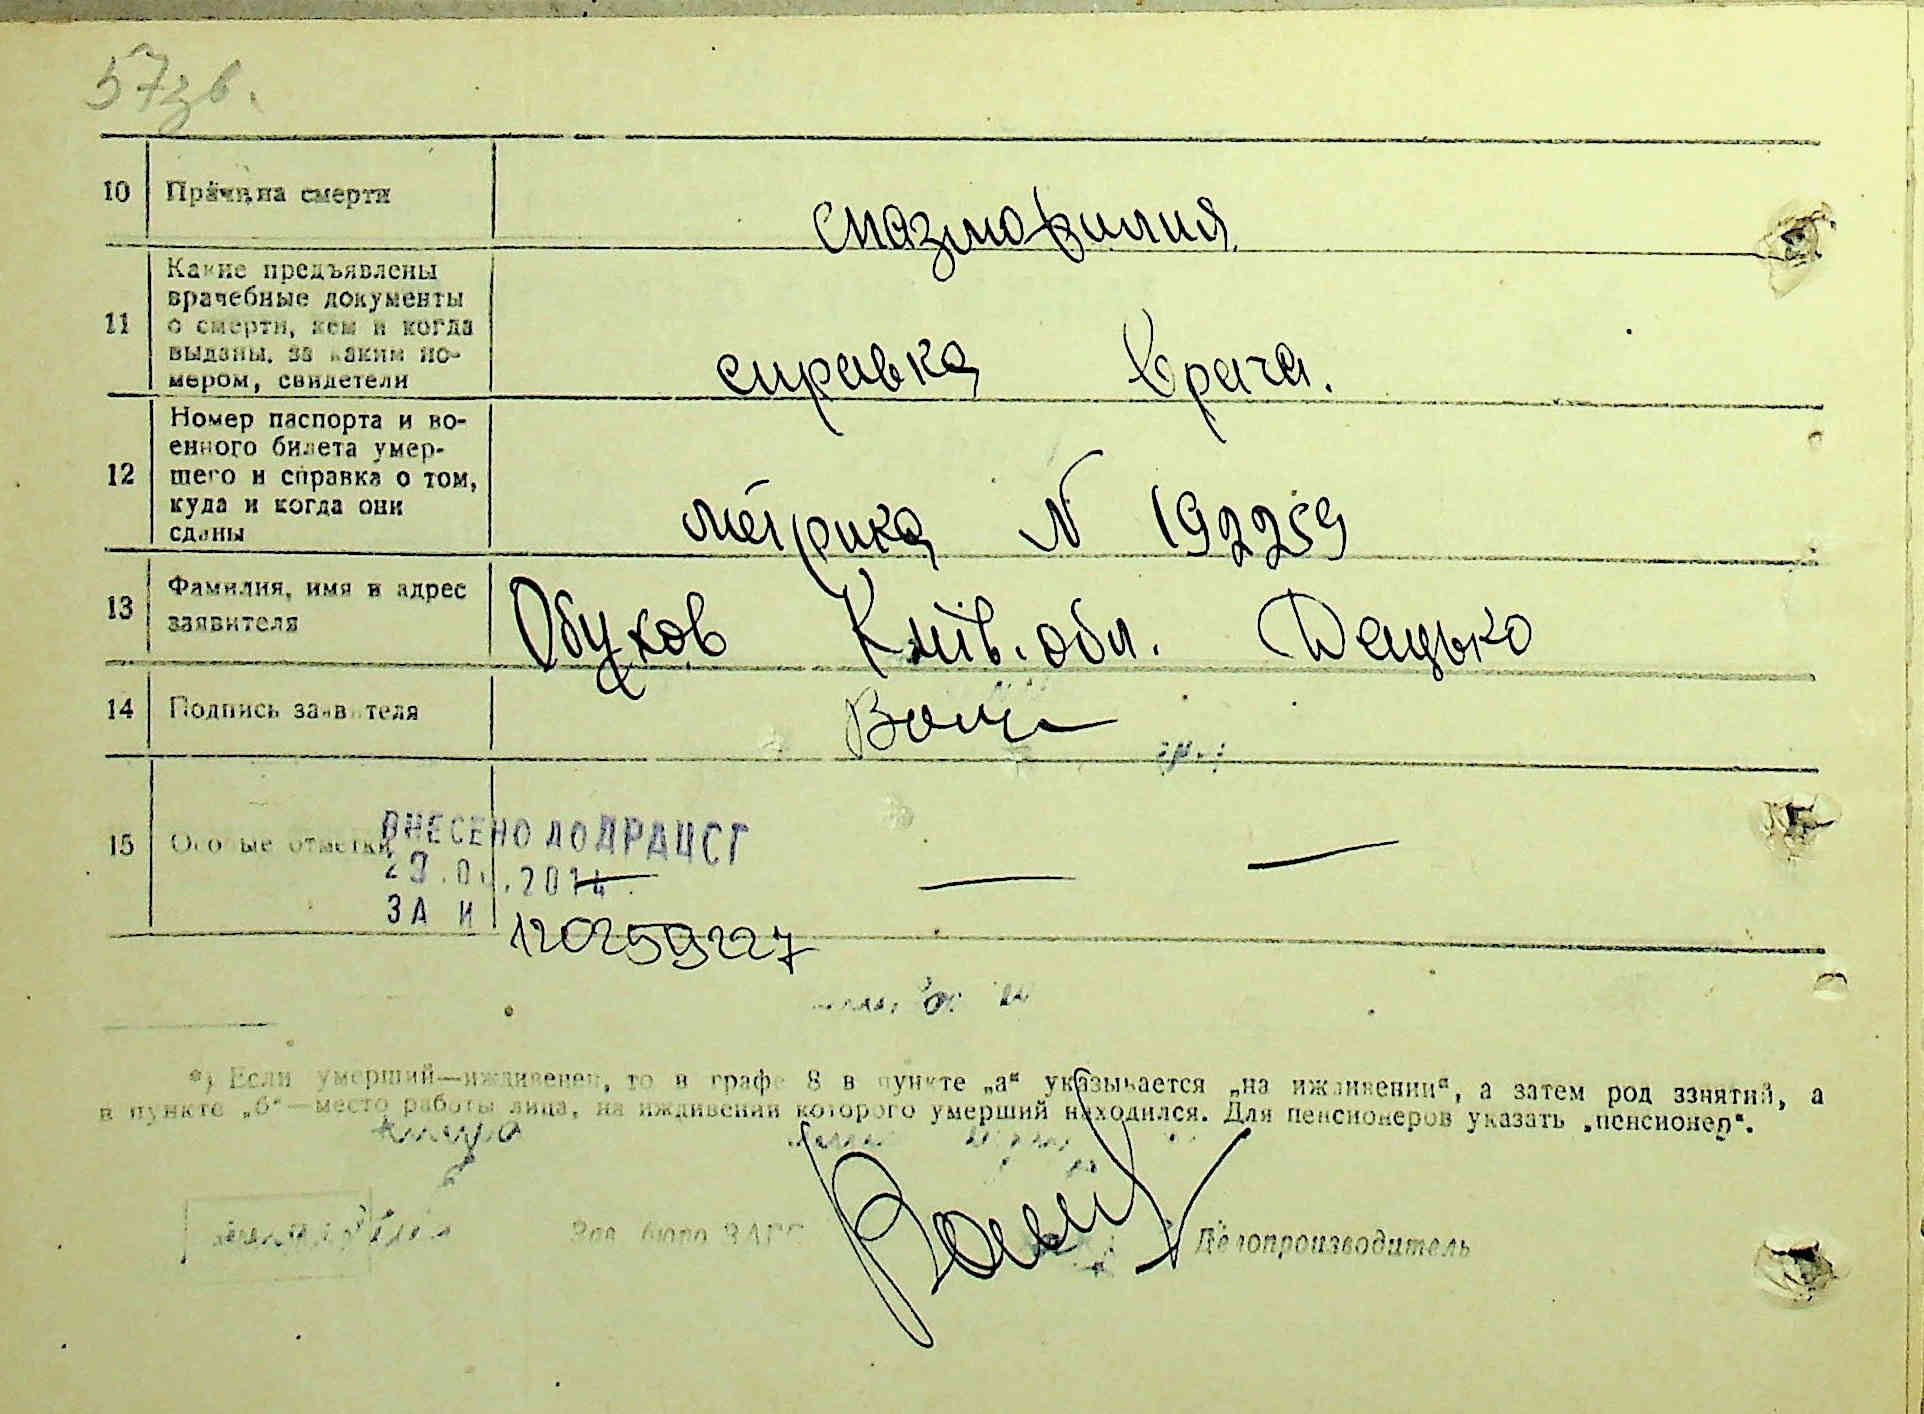 57зв.
10 Причина смерти
спазмофилия.
11 Какие предъявлены
врачебные документы
о смерти, кем и когда
выданы, за каким но-
мером, свидетели
справка врача.
12 Номер паспорта и во-
енного билета умер-
шего и справка о том,
куда и когда они
сданы
метрика N 192259
13 Фамилия, имя и адрес
заявителя
Обухов Київ. обл. Децько
14 Подпись заявителя
15 Особые отметки
ВНЕСЕНО ДО ДРАЦСГ
2014
ЗА И 120259227
— —
*) Если умерший—иждивенец, то в графе 8 в пункте „а“ указывается „на иждивении“, а затем род занятий, а
в пункте „б“—место работы лица, на иждивении которого умерший находился. Для пенсионеров указать „пенсионер“.
Зав. бюро ЗАГС Делопроизводитель